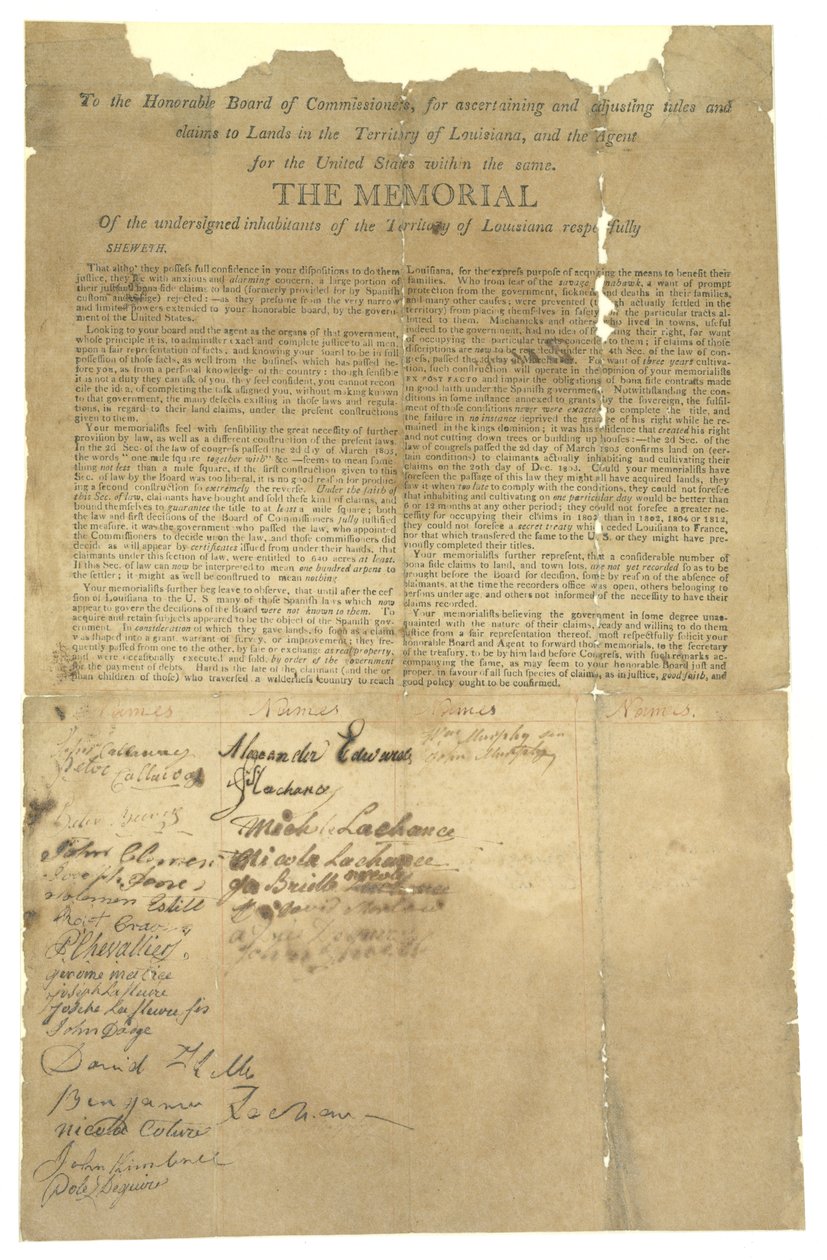 To the Honorable Board of Commissioners, for ascertaining and adjusting titles and
claims to Lands in the Territory of Louisiana, and the Agent
for the United States within the same.
THE MEMORIAL
Of the undersigned inhabitants of the Territory of Louisiana respectfully
SHEWETH,
That altho' they possess full confidence in your dispositions to do them
justice, they see with anxious and alarming concern, a large portion of
their just and bona side claims to land (formerly provided for by Spanish
custom and usage) rejected:—as they presume from the very narrow
and limited powers extended to your honorable board, by the govern-
ment of the United States.
Looking to your board and the agent as the organs of that government,
whose principle it is, to administer exact and complete justice to all men,
upon a fair representation of facts; and knowing your board to be in full
possession of those facts, as well from the business which has passed be-
fore you, as from a personal knowledge of the country: though sensible
it is not a duty they can ask of you, they feel confident, you cannot recon
cile the idea, of completing the task assigned you, without making known
to that government, the many defects existing in those laws and regula-
tions, in regard to their land claims, under the present constructions
given to them.
Your memorialists feel with sensibility the great necessity of further
provision by law, as well as a different construction of the present laws.
In the 2d Sec. of the law of congress passed the 2d day of March 1805,
the words "one mile square together with" &c—seems to mean some-
thing not less than a mile square, if the first construction given to this
Sec. of law by the Board was too liberal, it is no good reason for produc-
ing a second construction so extremely the reverse. Under the faith of
this Sec. of law, claimants have bought and sold these kind of claims, and
bound themselves to guarantee the title to at least a mile square; both
the law and first decisions of the Board of Commissioners fully justified
the measure, it was the government who passed the law, who appointed
the Commissioners to decide upon the law, and those commissioners did
decide as will appear by certificates issued from under their hands, that
claimants under this section of law, were entitled to 640 acres at least.
If this Sec. of law can now be interpreted to mean one hundred arpens to
the settler; it might as well be construed to mean nothing
Your memorialists further beg leave to observe, that until after the ces
sion of Louisiana to the U. S many of those Spanish laws which now
appear to govern the decisions of the Board were not known to them. To
acquire and retain subjects appeared to be the object of the Spanish gov-
ernment. In consideration of which they gave lands, so soon as a claim
was shaped into a grant warrant of survey, or improvement; they fre-
quently passed from one to the other, by sale or exchange as real property,
and were occasionally executed and sold, by order of the government
for the payment of debts. Hard is the fate of the claimant (and the or-
phan children of those) who traversed a wilderness country to reach
Louisiana, for the express purpose of acquiring the means to benefit their
families. Who from fear of the savage tomahawk, a want of prompt
protection from the government, sickness and deaths in their families,
and many other causes; were prevented (though actually settled in the
territory) from placing themselves in safety on the particular tracts al-
lotted to them. Mechanicks and others who lived in towns, useful
indeed to the government, had no idea of losing their right, for want
of occupying the particular tract conceded to them; if claims of those
discriptions are now to be rejected under the 4th Sec. of the law of con-
gress, passed the 3d day of March 1807. For want of three years cultiva-
tion, such construction will operate in the opinion of your memorialists
EX POST FACTO and impair the obligations of bona side contrasts made
in good faith under the Spanish government. Notwithstanding the con-
ditions in some instance annexed to grants by the sovereign, the fulfil-
ment of those conditions never were exacted to complete the title, and
the failure in no instance deprived the grantee of his right while he re-
mained in the kings dominion; it was his residence that created his right
and not cutting down trees or building up houses:—the 2d Sec. of the
law of congress passed the 2d day of March 1805 confirms land on (cer-
tain conditions) to claimants actually inhabiting and cultivating their
claims on the 20th day of Dec. 1803. Could your memorialists have
foreseen the passage of this law they might all have acquired lands, they
saw it when too late to comply with the conditions, they could not foresee
that inhabiting and cultivating on one particular day would be better than
6 or 12 months at any other period; they could not foresee a greater ne-
cessity for occupying their claims in 1803 than in 1802, 1804 or 1812,
they could not foresee a secret treaty which ceded Louisiana to France,
nor that which transfered the same to the U. S. or they might have pre-
viously completed their titles.
Your memorialists further represent, that a considerable number of
bona side claims to land, and town lots, are not yet recorded so as to be
brought before the Board for decision, some by reason of the absence of
claimants, at the time the recorders office was open, others belonging to
persons under age, and others not informed of the necessity to have their
claims recorded.
Your memorialists believing the government in some degree unac-
quainted with the nature of their claims, ready and willing to do them
justice from a fair representation thereof, most respectfully solicit your
honorable Board and Agent to forward those memorials, to the secretary
of the treasury, to be by him laid before Congress, with such remarks ac-
companying the same, as may seem to your honorable Board just and
proper, in favour of all such species of claims, as in justice, good faith, and
good policy ought to be confirmed.
Names Names Names Names.
John Callaway
Peter Callaway
John Clemen
Joseph
Solomon Estill
P. Chevallier
gerome
Joseph Lafleure
Josephe Lafleure fis
John
David
Benjamin
nicola Coture
John Kimbrell
Alexander Edwards
Lachance
Mich le Lachance
Nicola Lachance
ga Brielle nicole
David
Wm Murphy sen
John Murphy